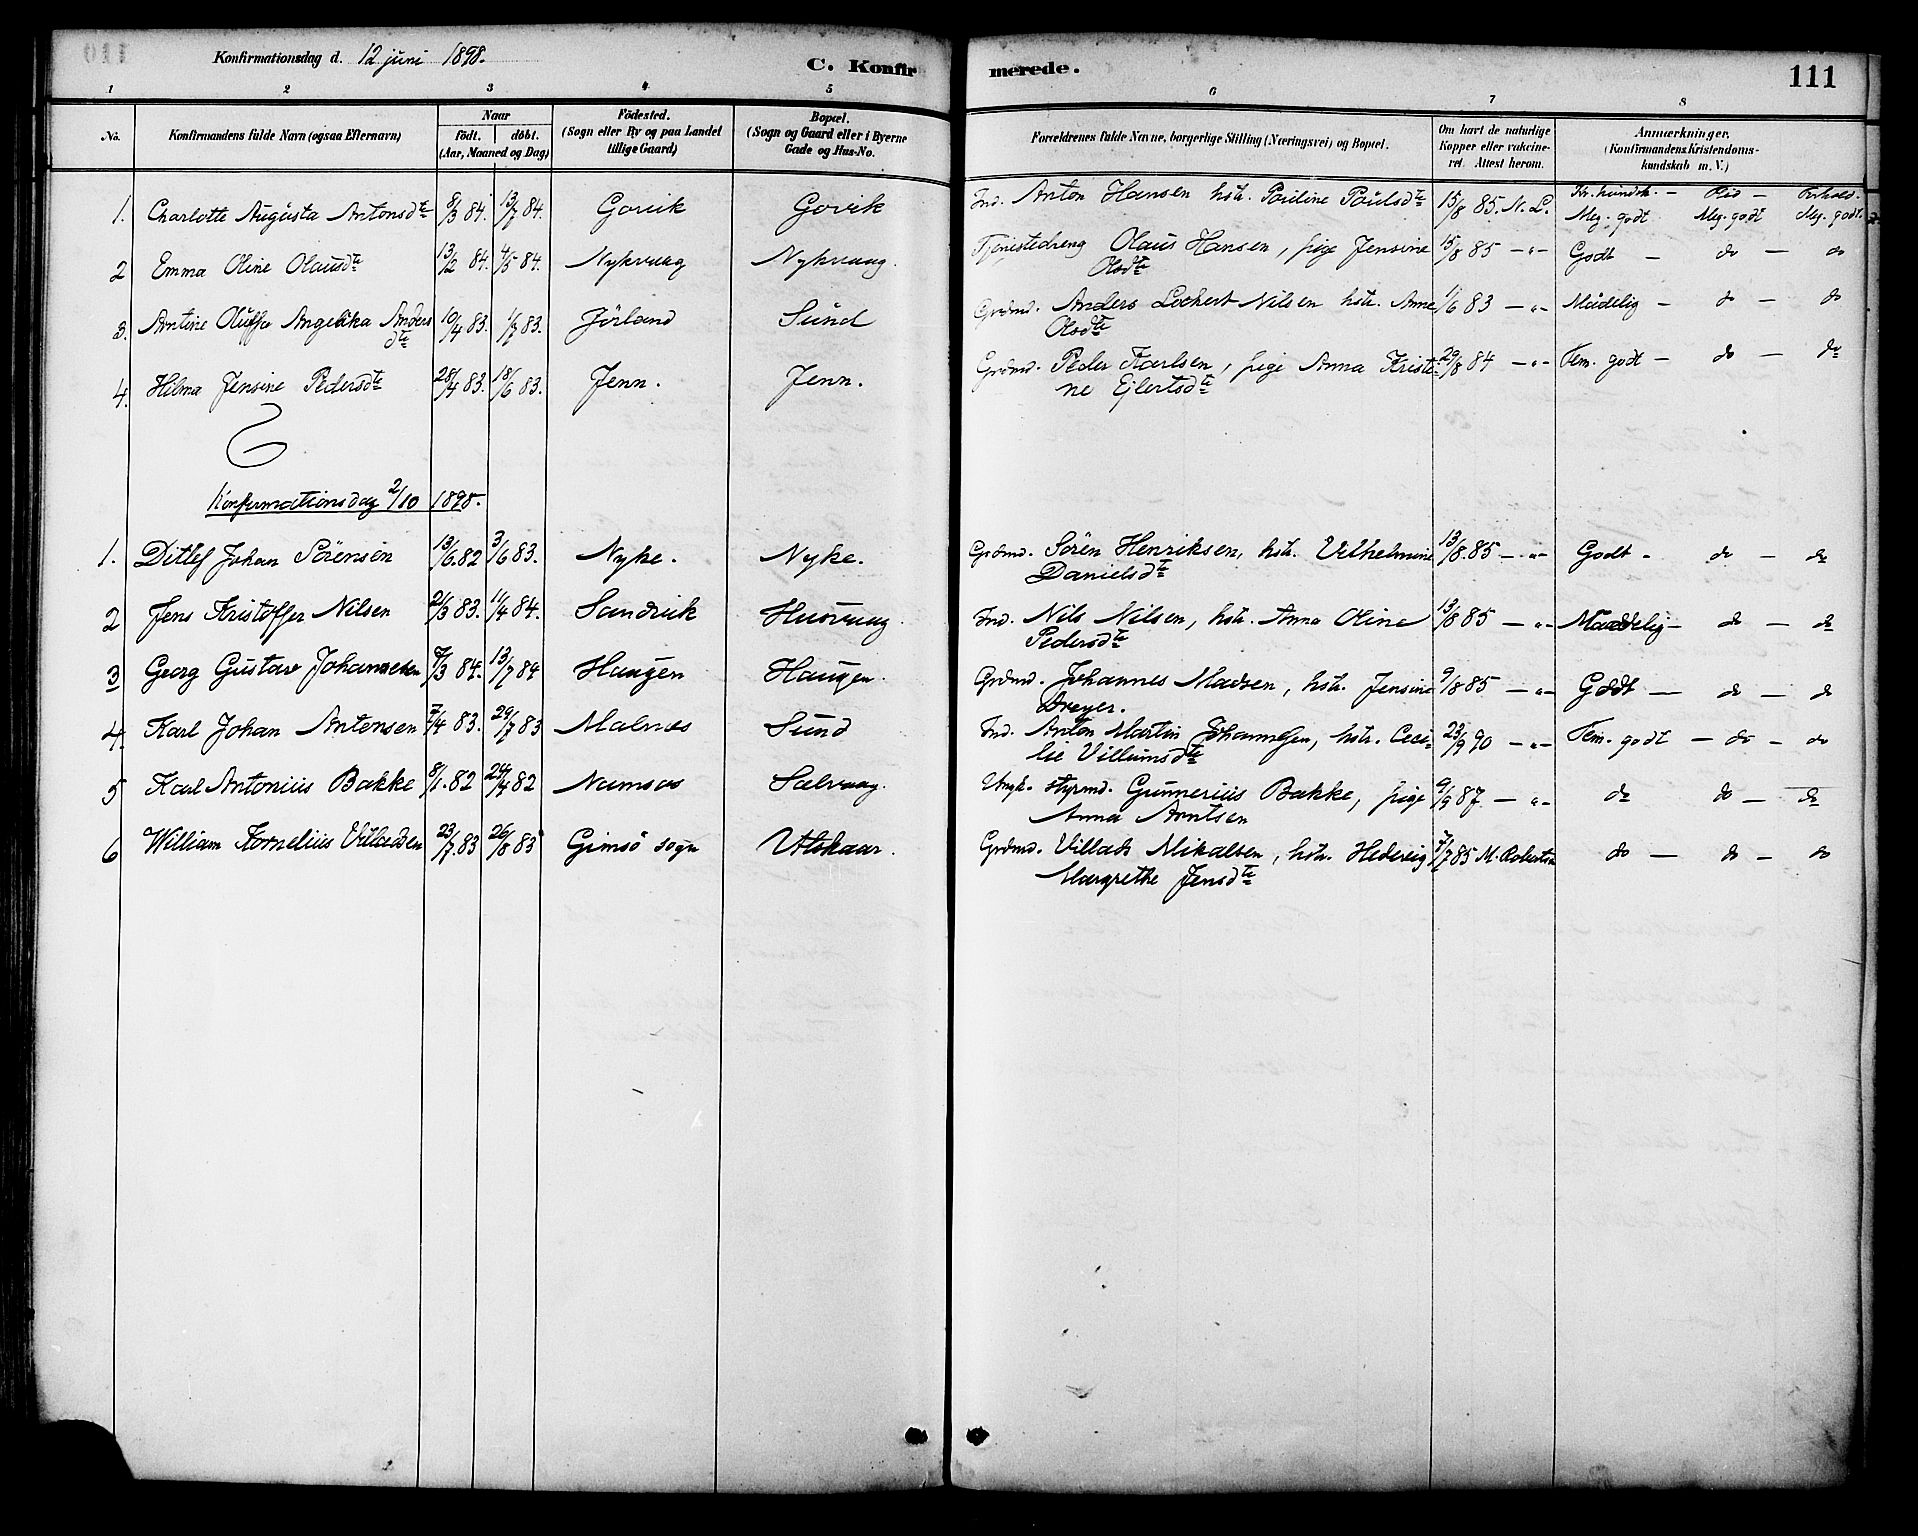 Konfirmationsdag d. 12 juni 1898.
C. Konfirmerede.
111
1 2 3 4 5 6 7 8
No. Konfirmandens fulde Navn (ogsaa Efternavn)
Naar født. døbt. (Aar, Maaned og Dag)
Fødested. (Sogn eller By og paa Landet tillige Gaard)
Bopæl. (Sogn og Gaard eller i Byerne Gade og Hus-No.
Forældrenes fulde Navne, borgerlige Stilling (Næringsvei) og Bopæl.
Om havt de naturlige Kopper eller vakcineret. Attest herom.
Anmærkninger, (Konfirmandens Kristendomskundskab m. V.)
Kr. kundsk. — Flid — Forhold.
1. Charlotte Augusta Antonsdte 8/3 84. 13/7 84. Govik Govik Ind. Anton Hansen hstr. Pauline Paulsdte 15/8 85. N. L. Meg. godt Meg. godt Meg. godt
2 Emma Oline Olausdte 13/2 84. 4/5 84. Nykvaag Nykvaag. Tjenestedreng Olaus Hansen, pige Jensine 15/8 85 — " — Godt — do — do
Olsdte
3. Antine Oluffa Angelika Anders 10/4 83. 1/7 83. Jörland Sund Grdmd. Anders Lockert Nilsen hstr. Anne 1/6 83 — " — Maadelig — do — do
dte Olsdte
4. Hilma Jensine Pedersdte 28/4 83. 18/6 83. Jenn. Jenn. Grdmd. Peder Karlsen, pige Anna Kristi- 29/8 84 — " — Tem. godt — do — do
ne Ejlertsdte
Konfirmationsdag 2/10 1898.
1. Ditlef Johan Sörensen 13/6 82 3/6 83. Nyke. Nyke. Grdmd. Sören Henriksen, hstr. Vilhelmine 13/8. 85 — " — Godt — do — do
Danielsdte
2 Jens Kristoffer Nilsen 21/3 83. 11/4 84. Sandvik Husvaag. Ind. Nils Nilsen, hstr. Anna Oline 13/8 85 — " — Maadelig — do — do
Pedersdte
3 Georg Gustav Johannesen 7/3 84. 13/7 84 Haugen Haugen. Grdmd. Johannes Madsen, hstr. Jensine 9/8 85 — " — Godt — do — do
Dreyer.
4. Karl Johan Antonsen 7/4 83. 29/7 83 Malnes Sund Ind. Anton Martin Johannesen, hstr. Ceci- 23/9 90 — " — Tem. godt — do — do
lie Villumsdte
5 Karl Antonius Bakke 8/1. 82 24/4 82 Namsos Sælvaag. Ungk. styrmd. Gunnerius Bakke, pige 9/9 87. — " — do do — do
Anna Arntsen
6 William Kornelius Villadsen 23/7 83 26/8 83 Gimsö sogn Utskaar. Grdmd. Villads Mikalsen, hstr. Hedevig 7/7 85 M. Robertsen do — do — do
Margrethe Jensdte